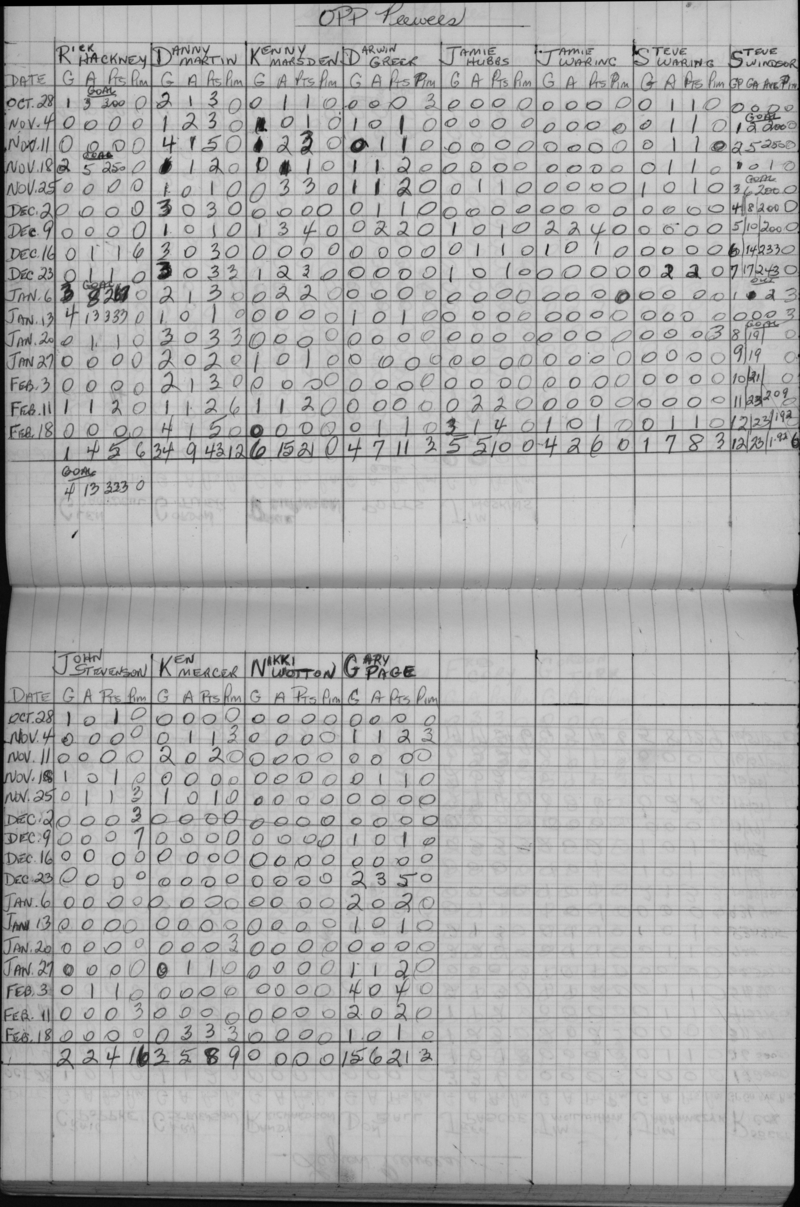 OPP Peewees
RICK HACKNEY DANNY MARTIN KENNY MARSDEN DARWIN GREER JAMIE HUBBS JAMIE WARING STEVE WARING STEVE WINDSOR
DATE G A Pts Pim G A Pts Pim G A Pts Pim G A Pts Pim G A Pts Pim G A Pts Pim G A Pts Pim GP GA Ave Pim
GOAL
OCT. 28 1 3 300 0 2 1 3 0 0 1 1 0 0 0 0 3 0 0 0 0 0 0 0 0 0 1 1 0 0 0 0 0
GOAL
NOV. 4 0 0 0 0 1 2 3 0 1 0 1 0 1 0 1 0 0 0 0 0 0 0 0 0 0 1 1 0 1 2 200 0
NOV. 11 0 0 0 0 4 1 5 0 1 2 3 0 0 1 1 0 0 0 0 0 0 0 0 0 0 1 1 0 2 5 250 0
GOAL
NOV. 18 2 5 250 0 1 1 2 0 0 1 1 0 1 1 2 0 0 0 0 0 0 0 0 0 0 1 1 0 0 1 0
GOAL
NOV. 25 0 0 0 0 1 0 1 0 0 3 3 0 1 1 2 0 0 1 1 0 0 0 0 0 1 0 1 0 3 6 200 0
DEC. 2 0 0 0 0 3 0 3 0 0 0 0 0 0 1 1 0 0 0 0 0 0 0 0 0 0 0 0 0 4 8 200 0
DEC. 9 0 0 0 0 1 0 1 0 1 3 4 0 0 2 2 0 1 0 1 0 2 2 4 0 0 0 0 0 5 10 200 0
DEC. 16 0 1 1 6 3 0 3 0 0 0 0 0 0 0 0 0 0 1 1 0 1 0 1 0 0 0 0 0 6 14 233 0
DEC. 23 0 1 1 0 3 0 3 3 1 2 3 0 0 0 0 0 1 0 1 0 0 0 0 0 0 2 2 0 7 17 243 0
GOAL OUT
JAN. 6 3 8 267 0 2 1 3 0 0 2 2 0 0 0 0 0 0 0 0 0 0 0 0 0 0 0 0 0 1 2 3
JAN. 13 4 13 333 0 1 0 1 0 0 0 0 0 1 0 1 0 0 0 0 0 0 0 0 0 0 0 0 0 0 0 0 3
GOAL
JAN. 20 0 1 1 0 3 0 3 3 0 0 0 0 0 0 0 0 0 0 0 0 0 0 0 0 0 0 0 3 8 19 0
JAN 27 0 0 0 0 2 0 2 0 1 0 1 0 0 0 0 0 0 0 0 0 0 0 0 0 0 0 0 9 19 0
FEB. 3 0 0 0 0 2 1 3 0 0 0 0 0 0 0 0 0 0 0 0 0 0 0 0 0 0 0 0 0 10 21 0
FEB. 11 1 1 2 0 1 1 2 6 1 1 2 0 0 0 0 0 0 2 2 0 0 0 0 0 0 0 0 0 11 23 209 0
FEB. 18 0 0 0 0 4 1 5 0 0 0 0 0 0 1 1 0 3 1 4 0 1 0 1 0 0 1 1 0 12 23 1.92 0
1 4 5 6 34 9 43 12 6 15 21 0 4 7 11 3 5 5 10 0 4 2 6 0 1 7 8 3 12 23 1.92 6
GOAL
4 13 333 0
JOHN STEVENSON KEN MERCER NIKKI WOTTON GARY PAGE
DATE G A Pts Pim G A Pts Pim G A Pts Pim G A Pts Pim
OCT. 28 1 0 1 0 0 0 0 0 0 0 0 0 0 0 0 0
NOV. 4 0 0 0 0 0 1 1 3 0 0 0 0 1 1 2 3
NOV. 11 0 0 0 0 2 0 2 0 0 0 0 0 0 0 0 0
NOV. 18 1 0 1 0 0 0 0 0 0 0 0 0 0 1 1 0
NOV. 25 0 1 1 3 1 0 1 0 0 0 0 0 0 0 0 0
DEC. 2 0 0 0 3 0 0 0 0 0 0 0 0 0 0 0 0
DEC. 9 0 0 0 7 0 0 0 0 0 0 0 0 1 0 1 0
DEC. 16 0 0 0 0 0 0 0 0 0 0 0 0 0 0 0 0
DEC. 23 0 0 0 0 0 0 0 0 0 0 0 0 2 3 5 0
JAN. 6 0 0 0 0 0 0 0 0 0 0 0 0 2 0 2 0
JAN 13 0 0 0 0 0 0 0 0 0 0 0 0 1 0 1 0
JAN. 20 0 0 0 0 0 0 0 3 0 0 0 0 0 0 0 0
JAN. 27 0 0 0 0 0 1 1 0 0 0 0 0 1 1 2 0
FEB. 3 0 1 1 0 0 0 0 0 0 0 0 0 4 0 4 0
FEB. 11 0 0 0 3 0 0 0 0 0 0 0 0 2 0 2 0
FEB. 18 0 0 0 0 0 3 3 3 0 0 0 0 1 0 1 0
2 2 4 16 3 5 8 9 0 0 0 0 15 6 21 3